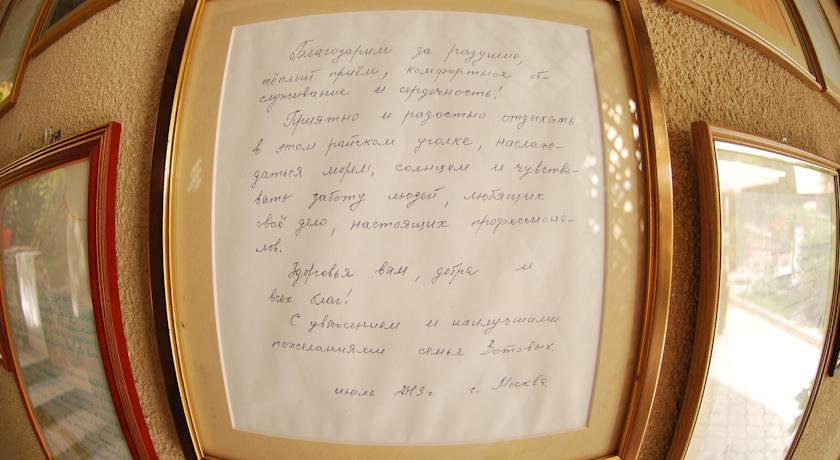 Благодарим за радушие,
тёплый приём, комфортное об-
служивание и сердечность!
Приятно и радостно отдыхать
в этом райском уголке, наслаж-
даться морем, солнцем и чувство-
вать заботу людей, любящих
своё дело, настоящих профессиона-
лов.
Здоровья вам, добра и
всех благ!
С уважением и наилучшими
пожеланиями семья Зотовых.
июль 2013 г. г. Москва.